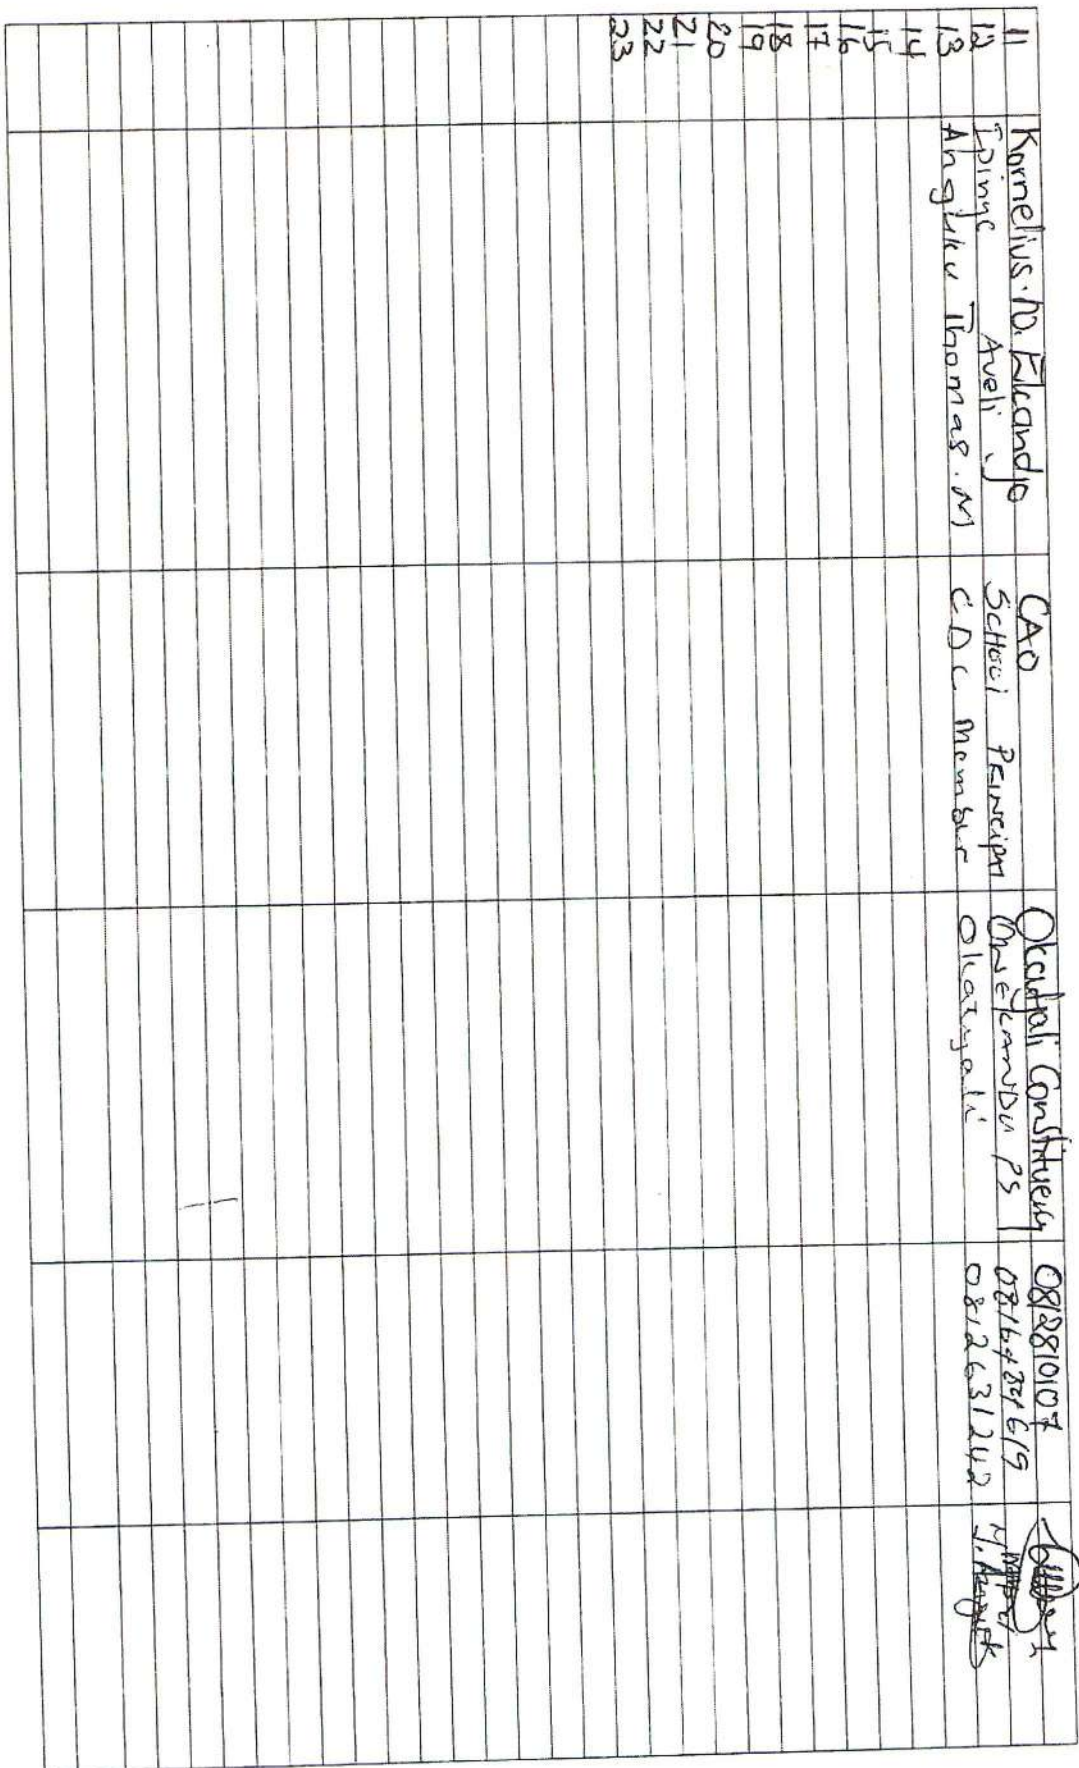 11 Kornelius. N. Ekandjo CAO Okatyali Constituency 0812810107
12 Ipinge Aveli .J School Principal Onekandu PS
13 Angliku Thomas. M CDC Member Okatyali 0812631242
14
15
16
17
18
19
20
21
22
23